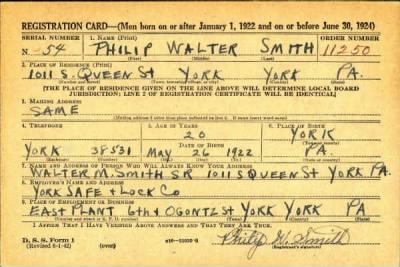 REGISTRATION CARD—(Men born on or after January 1, 1922 and on or before June 30, 1924)
SERIAL NUMBER 1. NAME (Print) ORDER NUMBER
N. 54 PHILIP WALTER SMITH 11250
(First) (Middle) (Last)
2. PLACE OF RESIDENCE (Print)
1011 S. QUEEN St YORK YORK PA.
(Number and street) (Town, township, village, or city) (County) (State)
[THE PLACE OF RESIDENCE GIVEN ON THE LINE ABOVE WILL DETERMINE LOCAL BOARD
JURISDICTION; LINE 2 OF REGISTRATION CERTIFICATE WILL BE IDENTICAL]
3. MAILING ADDRESS
SAME
[Mailing address if other than place indicated on line 2. If same insert word same]
4. TELEPHONE 5. AGE IN YEARS 6. PLACE OF BIRTH
20 YORK
DATE OF BIRTH (Town or county)
YORK 38531 MAY 26 1922 PA.
(Exchange) (Number) (Mo.) (Day) (Yr.) (State or country)
7. NAME AND ADDRESS OF PERSON WHO WILL ALWAYS KNOW YOUR ADDRESS
WALTER M. SMITH SR 1011 S QUEEN St YORK PA.
8. EMPLOYER'S NAME AND ADDRESS
YORK SAFE + LOCK CO
9. PLACE OF EMPLOYMENT OR BUSINESS
EAST PLANT 6th + OGONTZ St YORK YORK PA
(Number and street or R. F. D. number) (Town) (County) (State)
I AFFIRM THAT I HAVE VERIFIED ABOVE ANSWERS AND THAT THEY ARE TRUE.
D. S. S. Form 1
(Revised 6-1-42) (over) Philip W. Smith
(Registrant's signature)